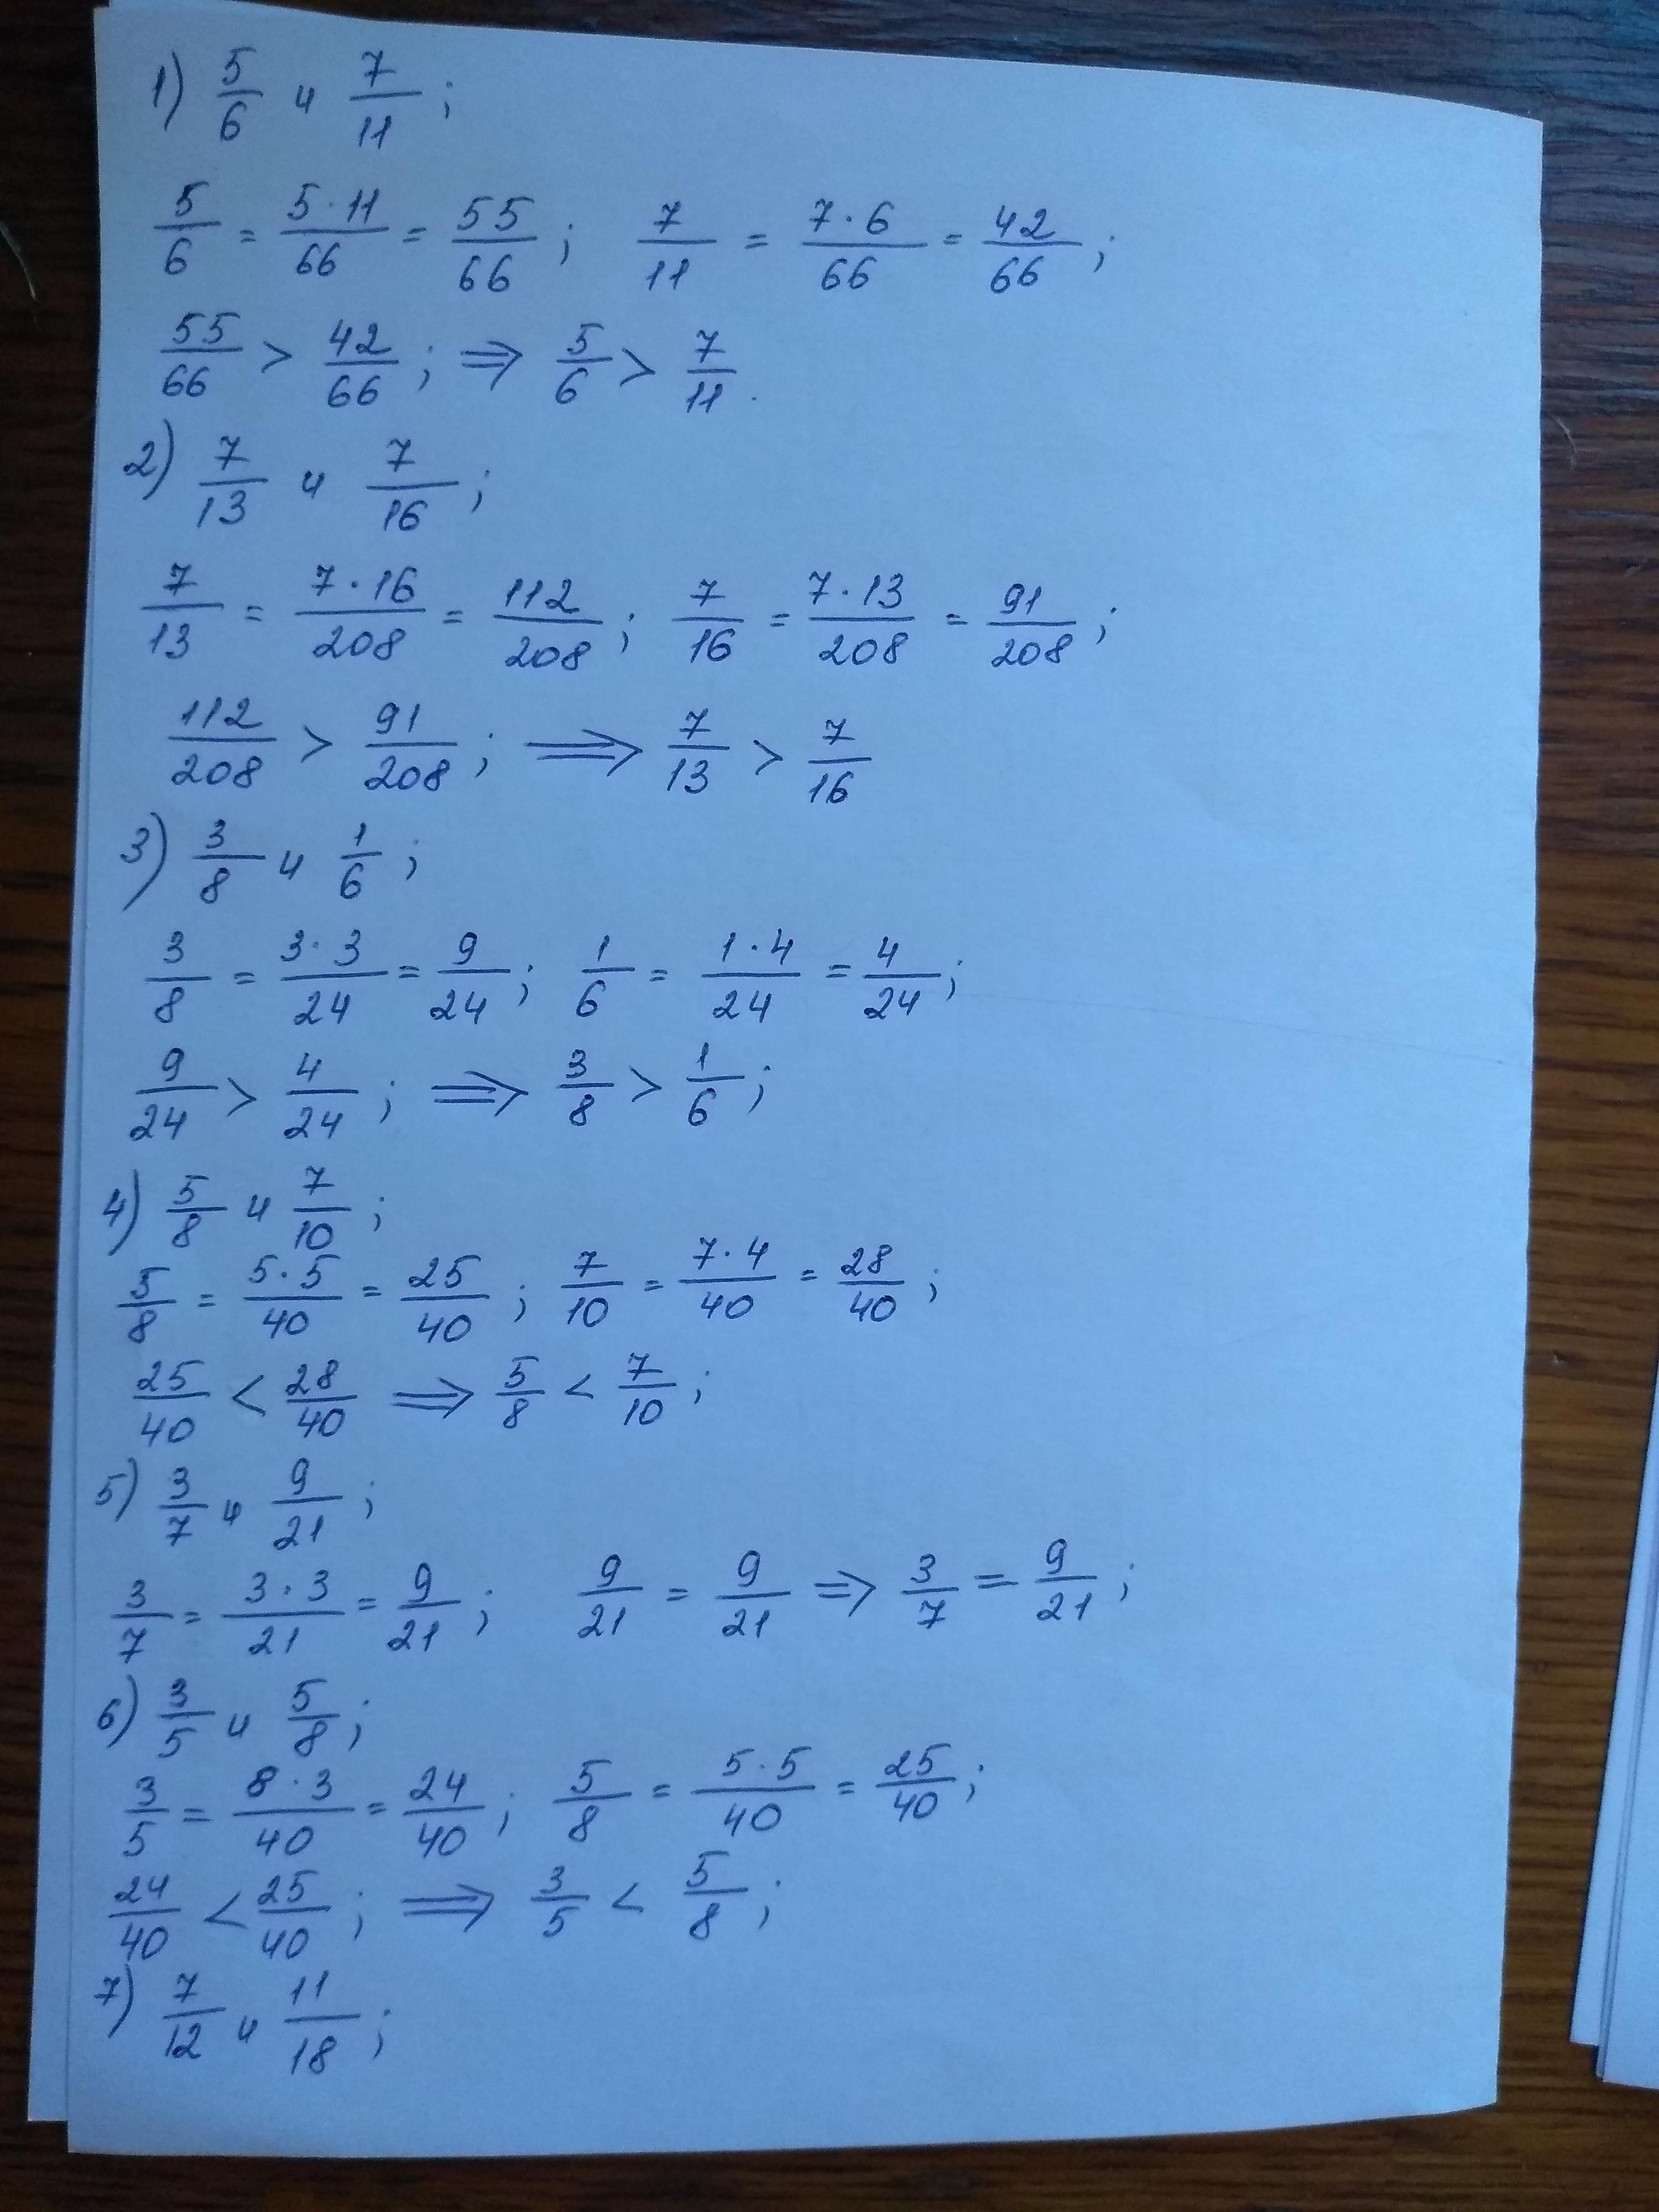 1) 5/6 и 7/11 ;
5/6 = 5·11/66 = 55/66 ; 7/11 = 7·6/66 = 42/66 ;
55/66 > 42/66 ; ⇒ 5/6 > 7/11 .
2) 7/13 и 7/16 ;
7/13 = 7·16/208 = 112/208 ; 7/16 = 7·13/208 = 91/208 ;
112/208 > 91/208 ; ⟹ 7/13 > 7/16
3) 3/8 и 1/6 ;
3/8 = 3·3/24 = 9/24 ; 1/6 = 1·4/24 = 4/24 ;
9/24 > 4/24 ; ⟹ 3/8 > 1/6 ;
4) 5/8 и 7/10 ;
5/8 = 5·5/40 = 25/40 ; 7/10 = 7·4/40 = 28/40 ;
25/40 < 28/40 ⟹ 5/8 < 7/10 ;
5) 3/7 и 9/21 ;
3/7 = 3·3/21 = 9/21 ; 9/21 = 9/21 ⇒ 3/7 = 9/21 ;
6) 3/5 и 5/8 ;
3/5 = 8·3/40 = 24/40 ; 5/8 = 5·5/40 = 25/40 ;
24/40 < 25/40 ; ⟹ 3/5 < 5/8 ;
7) 7/12 и 11/18 ;